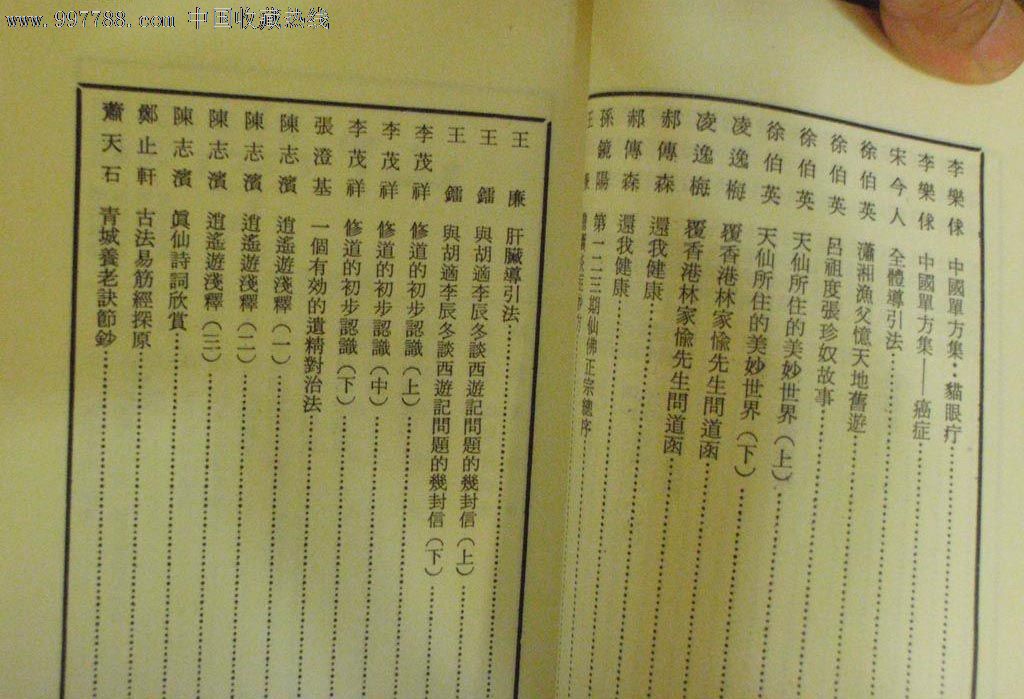 www.997788.com 中国收藏热线
李樂俅 中國單方集·貓眼疔
李樂俅 中國單方集——癌症
宋今人 全體導引法
徐伯英 瀟湘漁父憶天地舊遊
徐伯英 呂祖度張珍奴故事
徐伯英 天仙所住的美妙世界（上）
徐伯英 天仙所住的美妙世界（下）
凌逸梅 覆香港林家愉先生問道函
凌逸梅 覆香港林家愉先生問道函
郝傳森 還我健康
郝傳森 還我健康
孫鏡陽 第一二三期仙佛正宗總序
王廉 肝臟導引法
王鐳 與胡適李辰冬談西遊記問題的幾封信（上）
王鐳 與胡適李辰冬談西遊記問題的幾封信（下）
李茂祥 修道的初步認識（上）
李茂祥 修道的初步認識（中）
李茂祥 修道的初步認識（下）
張澄基 一個有効的遺精對治法
陳志濱 逍遙遊淺釋（一）
陳志濱 逍遙遊淺釋（二）
陳志濱 逍遙遊淺釋（三）
陳志濱 眞仙詩詞欣賞
鄭止軒 古法易筋經探原
蕭天石 青城養老訣節鈔